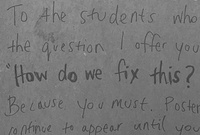 To the students who
the question I offer you
"How do we fix this?
Because you must. Poster
continue to appear until you